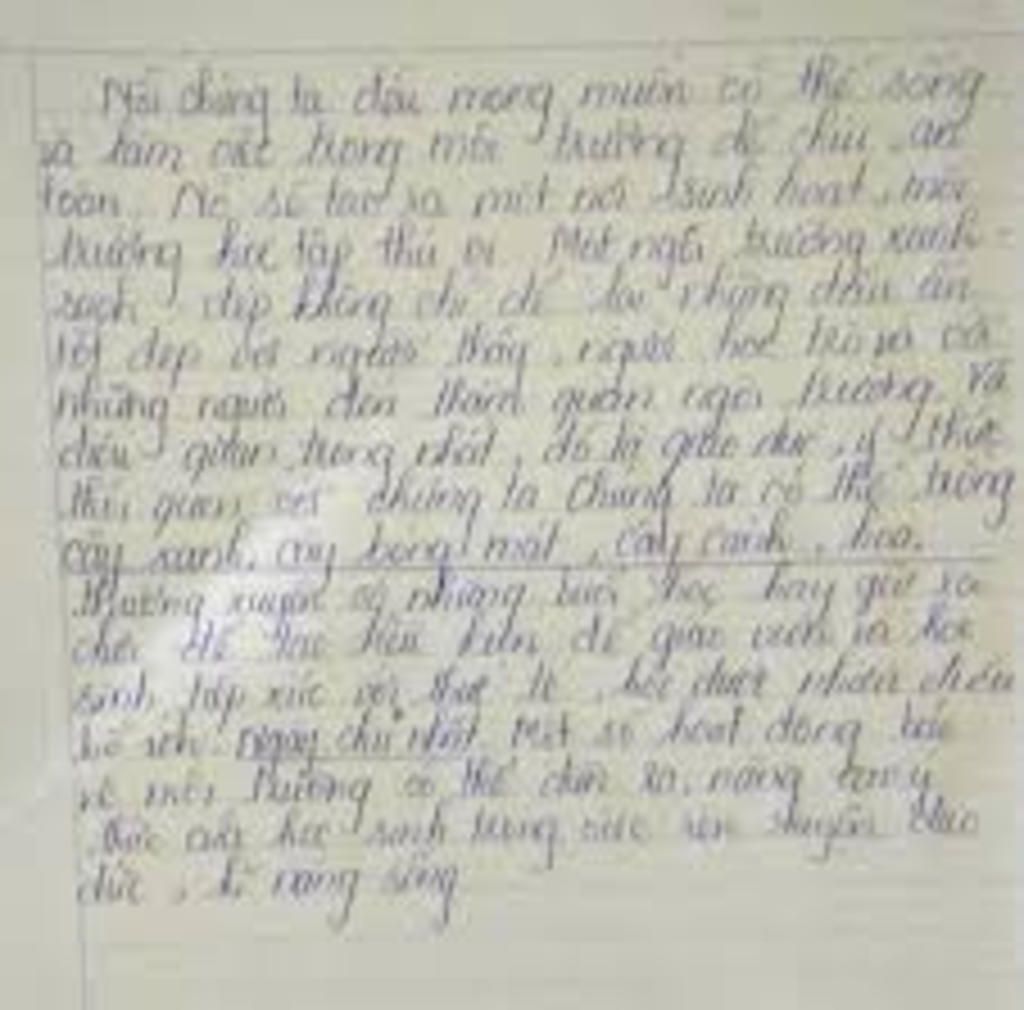 Mỗi chúng ta đều mong muốn có thể sống
và làm việc trong môi trường dễ chịu, an
toàn. Nó sẽ tạo ra một nơi sinh hoạt, môi
trường học tập thú vị. Một ngôi trường xanh -
sạch - đẹp không chỉ để lại những dấu ấn
tốt đẹp với người thầy, người học trò mà cả
những người đến thăm quan ngôi trường. Và
điều quan trọng nhất, đó là giáo dục, ý thức
thói quen với chúng ta. Chúng ta có thể trồng
cây xanh, cây bóng mát, cây cảnh, hoa.
Thường xuyên có những buổi học hay giờ ra
chơi để tạo điều kiện để giáo viên và học
sinh tiếp xúc với thực tế, học được nhiều điều
bổ ích. Ngày chủ nhật một số hoạt động bảo
vệ môi trường có thể diễn ra, nâng cao ý
thức của học sinh trong việc rèn luyện đạo
đức, kĩ năng sống